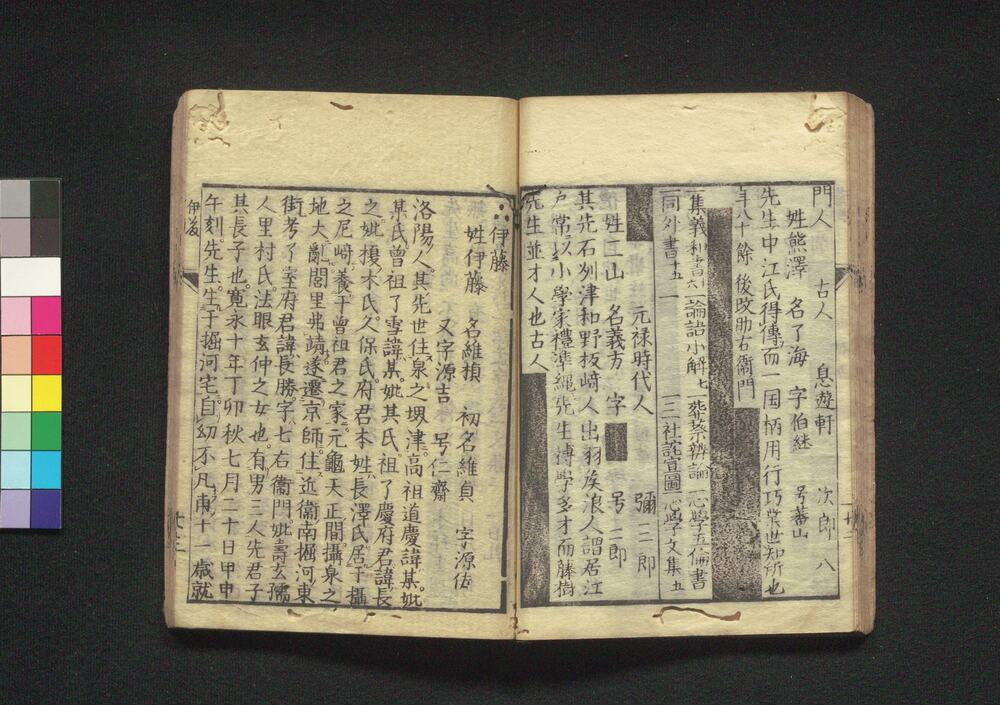 門人 古人 息遊軒 次郎八
姓熊澤 名了海 字伯継 号蕃山
先生中江氏得傳而一国柄用行巧業世知所也
年八十餘後改助右衛門
集義和書六 論語小解七 葬祭辨論一 心学五倫書一
同外書十五 一 一 三社託宣圖一 心学文集五
元禄時代人 彌三郎
姓二山 名義方 字 号二郎
其先石列津和野板﨑人出羽矦浪人謂居江
戸常以小学家禮準縄先生博学多才而藤樹
先生並才人也古人
伊藤
姓伊藤 名維楨 初名維貞 字源佐
又字源吉 号仁齋
洛陽人其先世住泉之堺津高祖道慶諱某妣
某氏曾祖了雪諱某妣其氏祖了慶府君諱長
之妣榎木氏久保氏府君本姓長澤氏居于攝
之尼﨑養于曾祖君之家元龜天正間攝泉之
地大亂閭里弗靖遂遷京師住近衞南堀河東
街考了室府君諱長勝字七右衞門妣壽玄孺
人里村氏法眼玄仲之女也有男三人先君子
其長子也寛永十年丁卯秋七月二十日甲申
午刻先生生于掘河宅自幼不凡甫十一歳就
伊後 七三